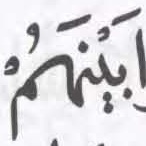 ا بَيْنَهُمْ